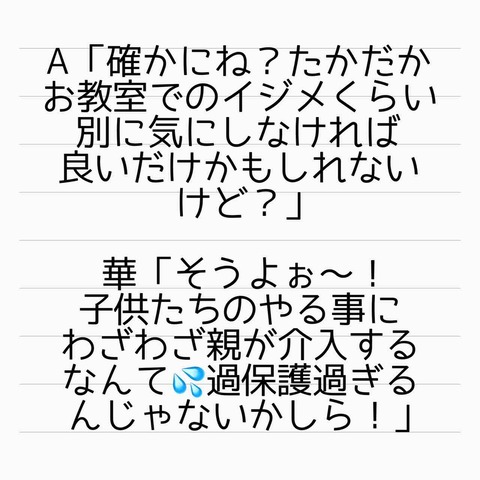 A「確かにね?たかだか
お教室でのイジメくらい
別に気にしなければ
良いだけかもしれない
けど?」
華「そうよぉ〜!
子供たちのやる事に
わざわざ親が介入する
なんて💦過保護過ぎる
んじゃないかしら!」